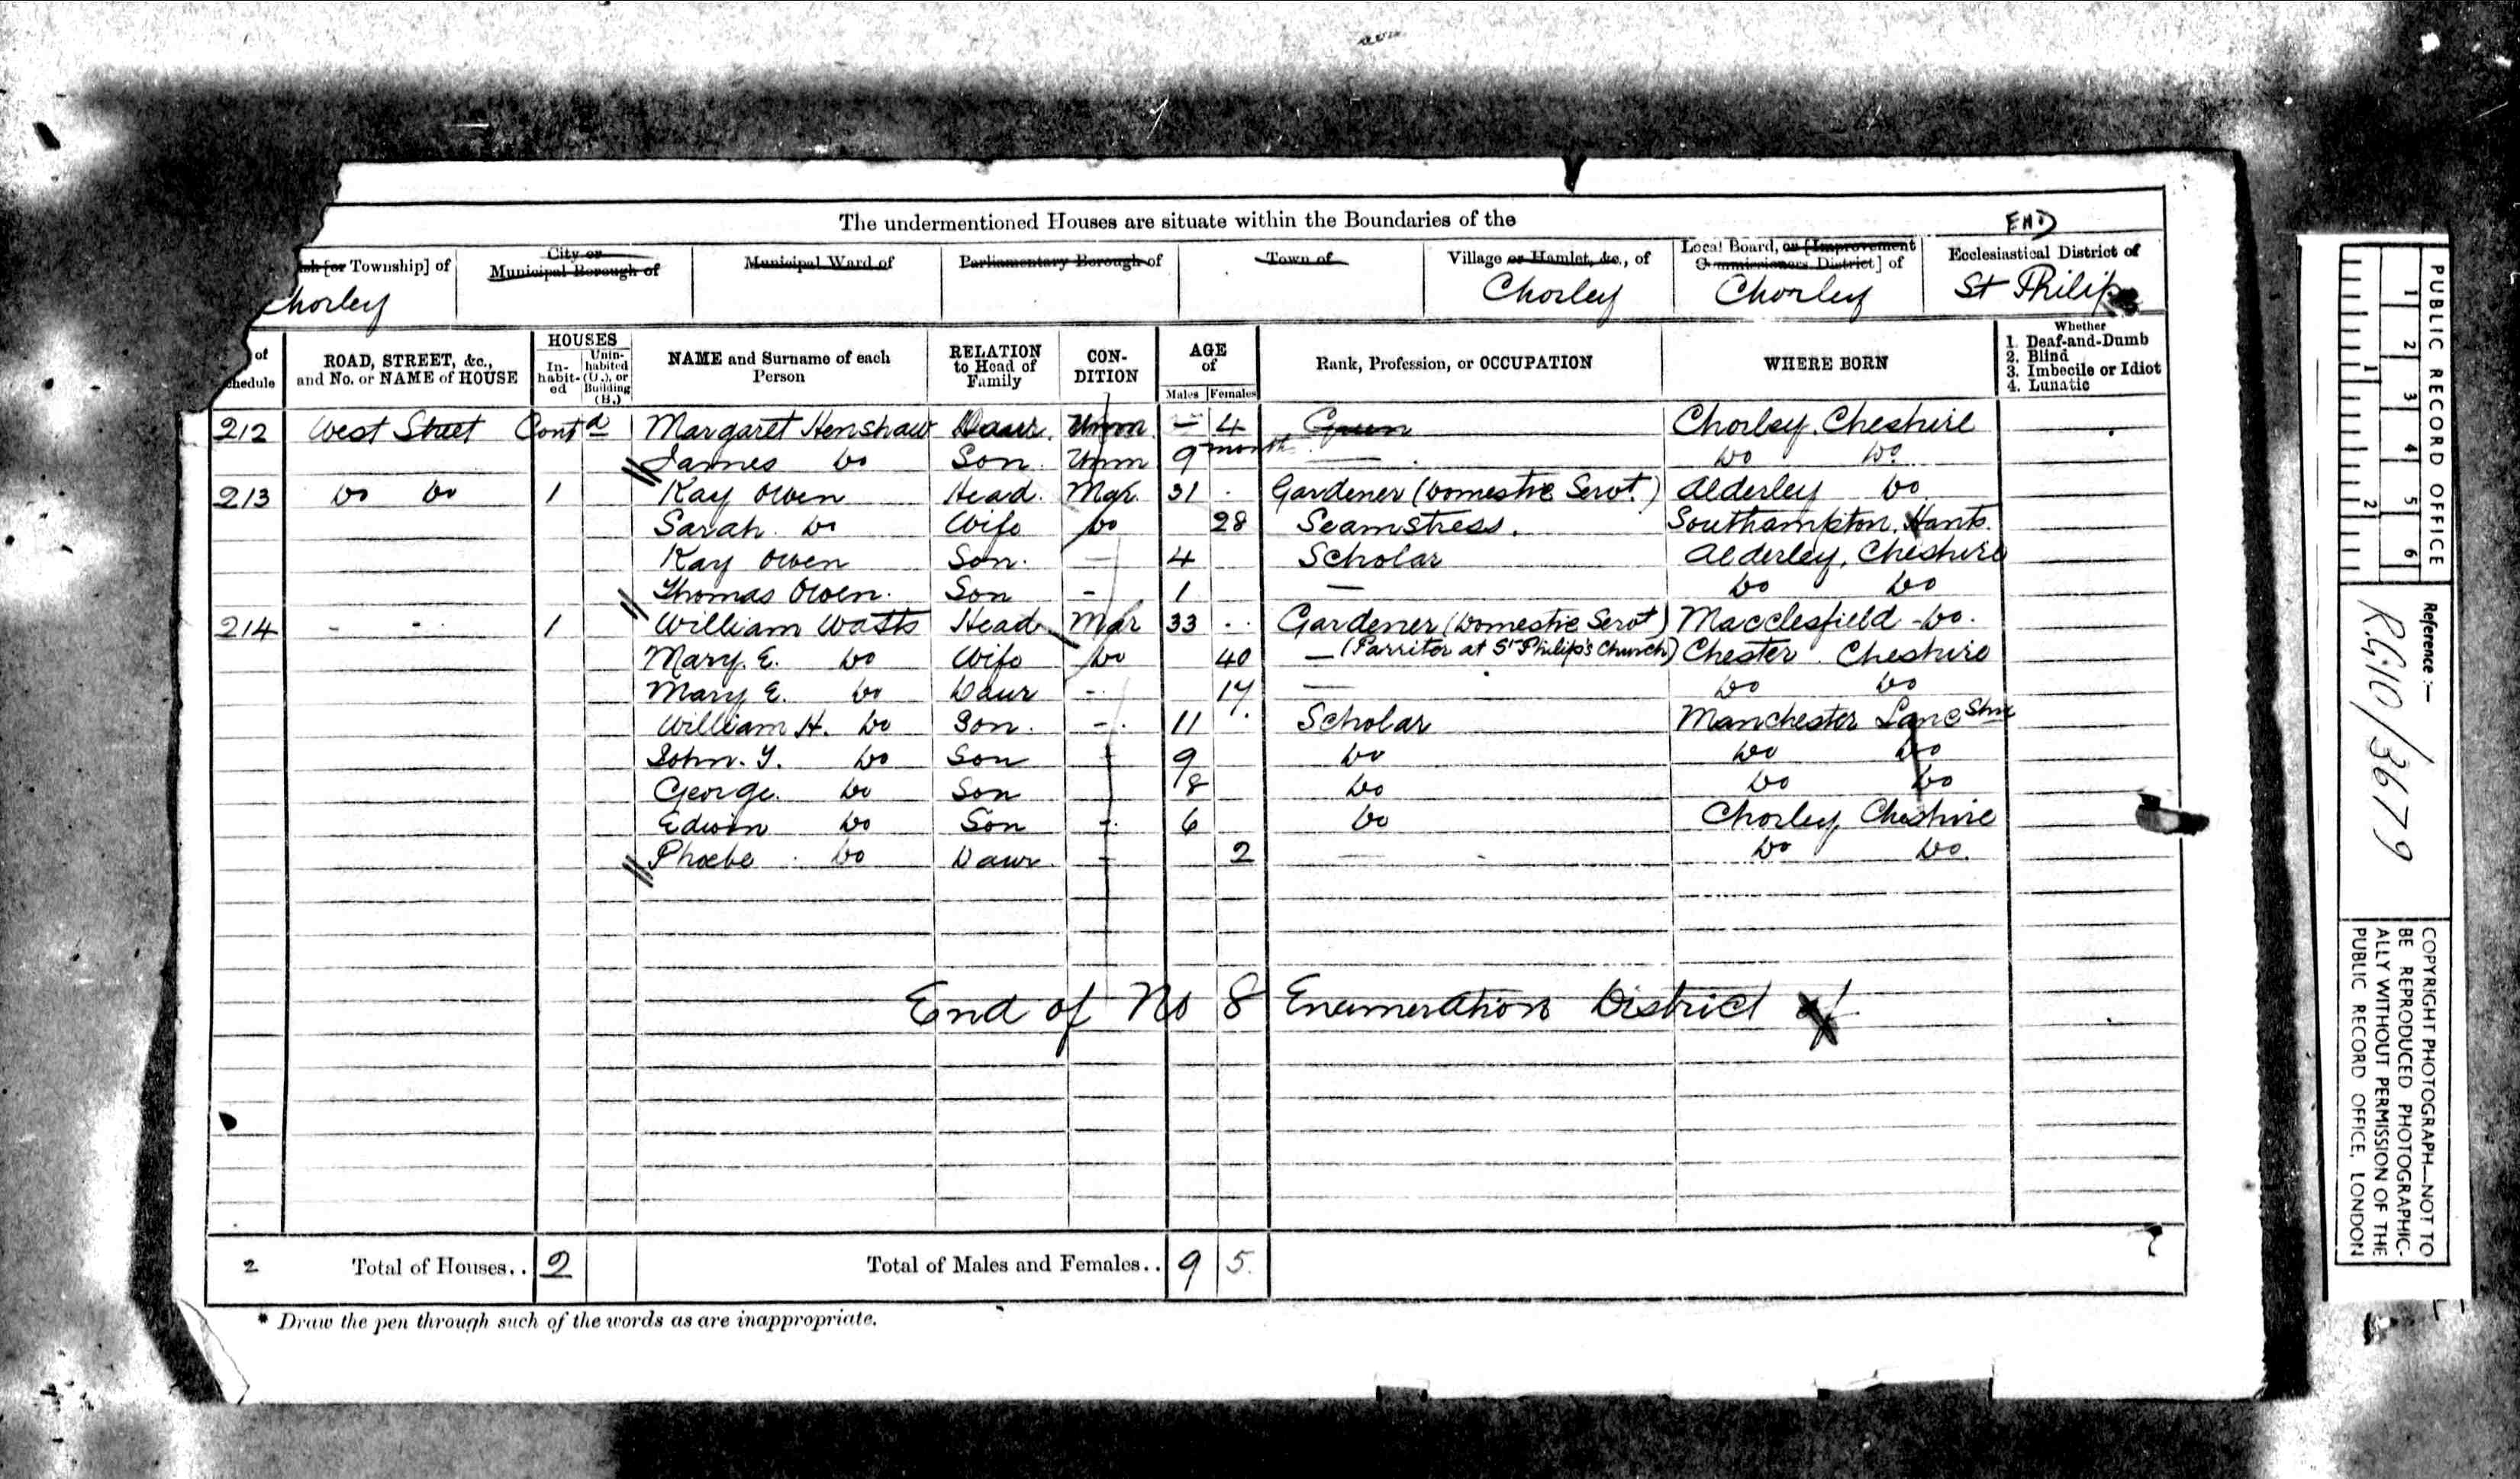 The undermentioned Houses are situate within the Boundaries of the
END
[or Township] of
City or Municipal Borough of
Municipal Ward of
Parliamentary Borough of
Town of
Village or Hamlet, &c., of
Local Board, or [Improvement Commissioners District] of
Ecclesiastical District of
Chorley Chorley Chorley St Philips
of
ROAD, STREET, &c., and No. or NAME of HOUSE
HOUSES
In-habit-ed
Unin-habited (U.), or Building (B.)
NAME and Surname of each Person
RELATION to Head of Family
CON-DITION
AGE of
Males Females
Rank, Profession, or OCCUPATION
WHERE BORN
Whether
1. Deaf-and-Dumb
2. Blind
3. Imbecile or Idiot
4. Lunatic
212 West Street Contd Margaret Henshaw Daur. Unm - 4 Chorley, Cheshire
James Do Son. Unm 9 month — Do Do
213 Do Do 1 Kay Owen Head. Mar. 31 Gardener (Domestic Servt.) Alderley Do
Sarah Do Wife Do 28 Seamstress. Southampton, Hants.
Kay Owen Son. — 4 Scholar Alderley, Cheshire
Thomas Owen. Son - 1 — Do Do
214 - - 1 William Watts Head Mar 33 Gardener (Domestic Servt) Macclesfield - Do.
Mary. E. Do Wife Do 40 — (Parritor at St Philip's Church) Chester Cheshire
Mary E. Do Daur - 17 — Do Do
William H. Do Son. - 11 Scholar Manchester Lancshire
John. Y. Do Son - 9 Do Do Do
George. Do Son 8 Do Do Do
Edwin Do Son - 6 Do Chorley Cheshire
Phoebe Do Daur - 2 — Do Do.
End of No 8 Enumeration District
2 Total of Houses.. 2 Total of Males and Females.. 9 5.
* Draw the pen through such of the words as are inappropriate.
PUBLIC RECORD OFFICE
1 2 3 4 5 6
1 2
Reference :—
R.G.10/3679
COPYRIGHT PHOTOGRAPH—NOT TO
BE REPRODUCED PHOTOGRAPHIC-
ALLY WITHOUT PERMISSION OF THE
PUBLIC RECORD OFFICE, LONDON